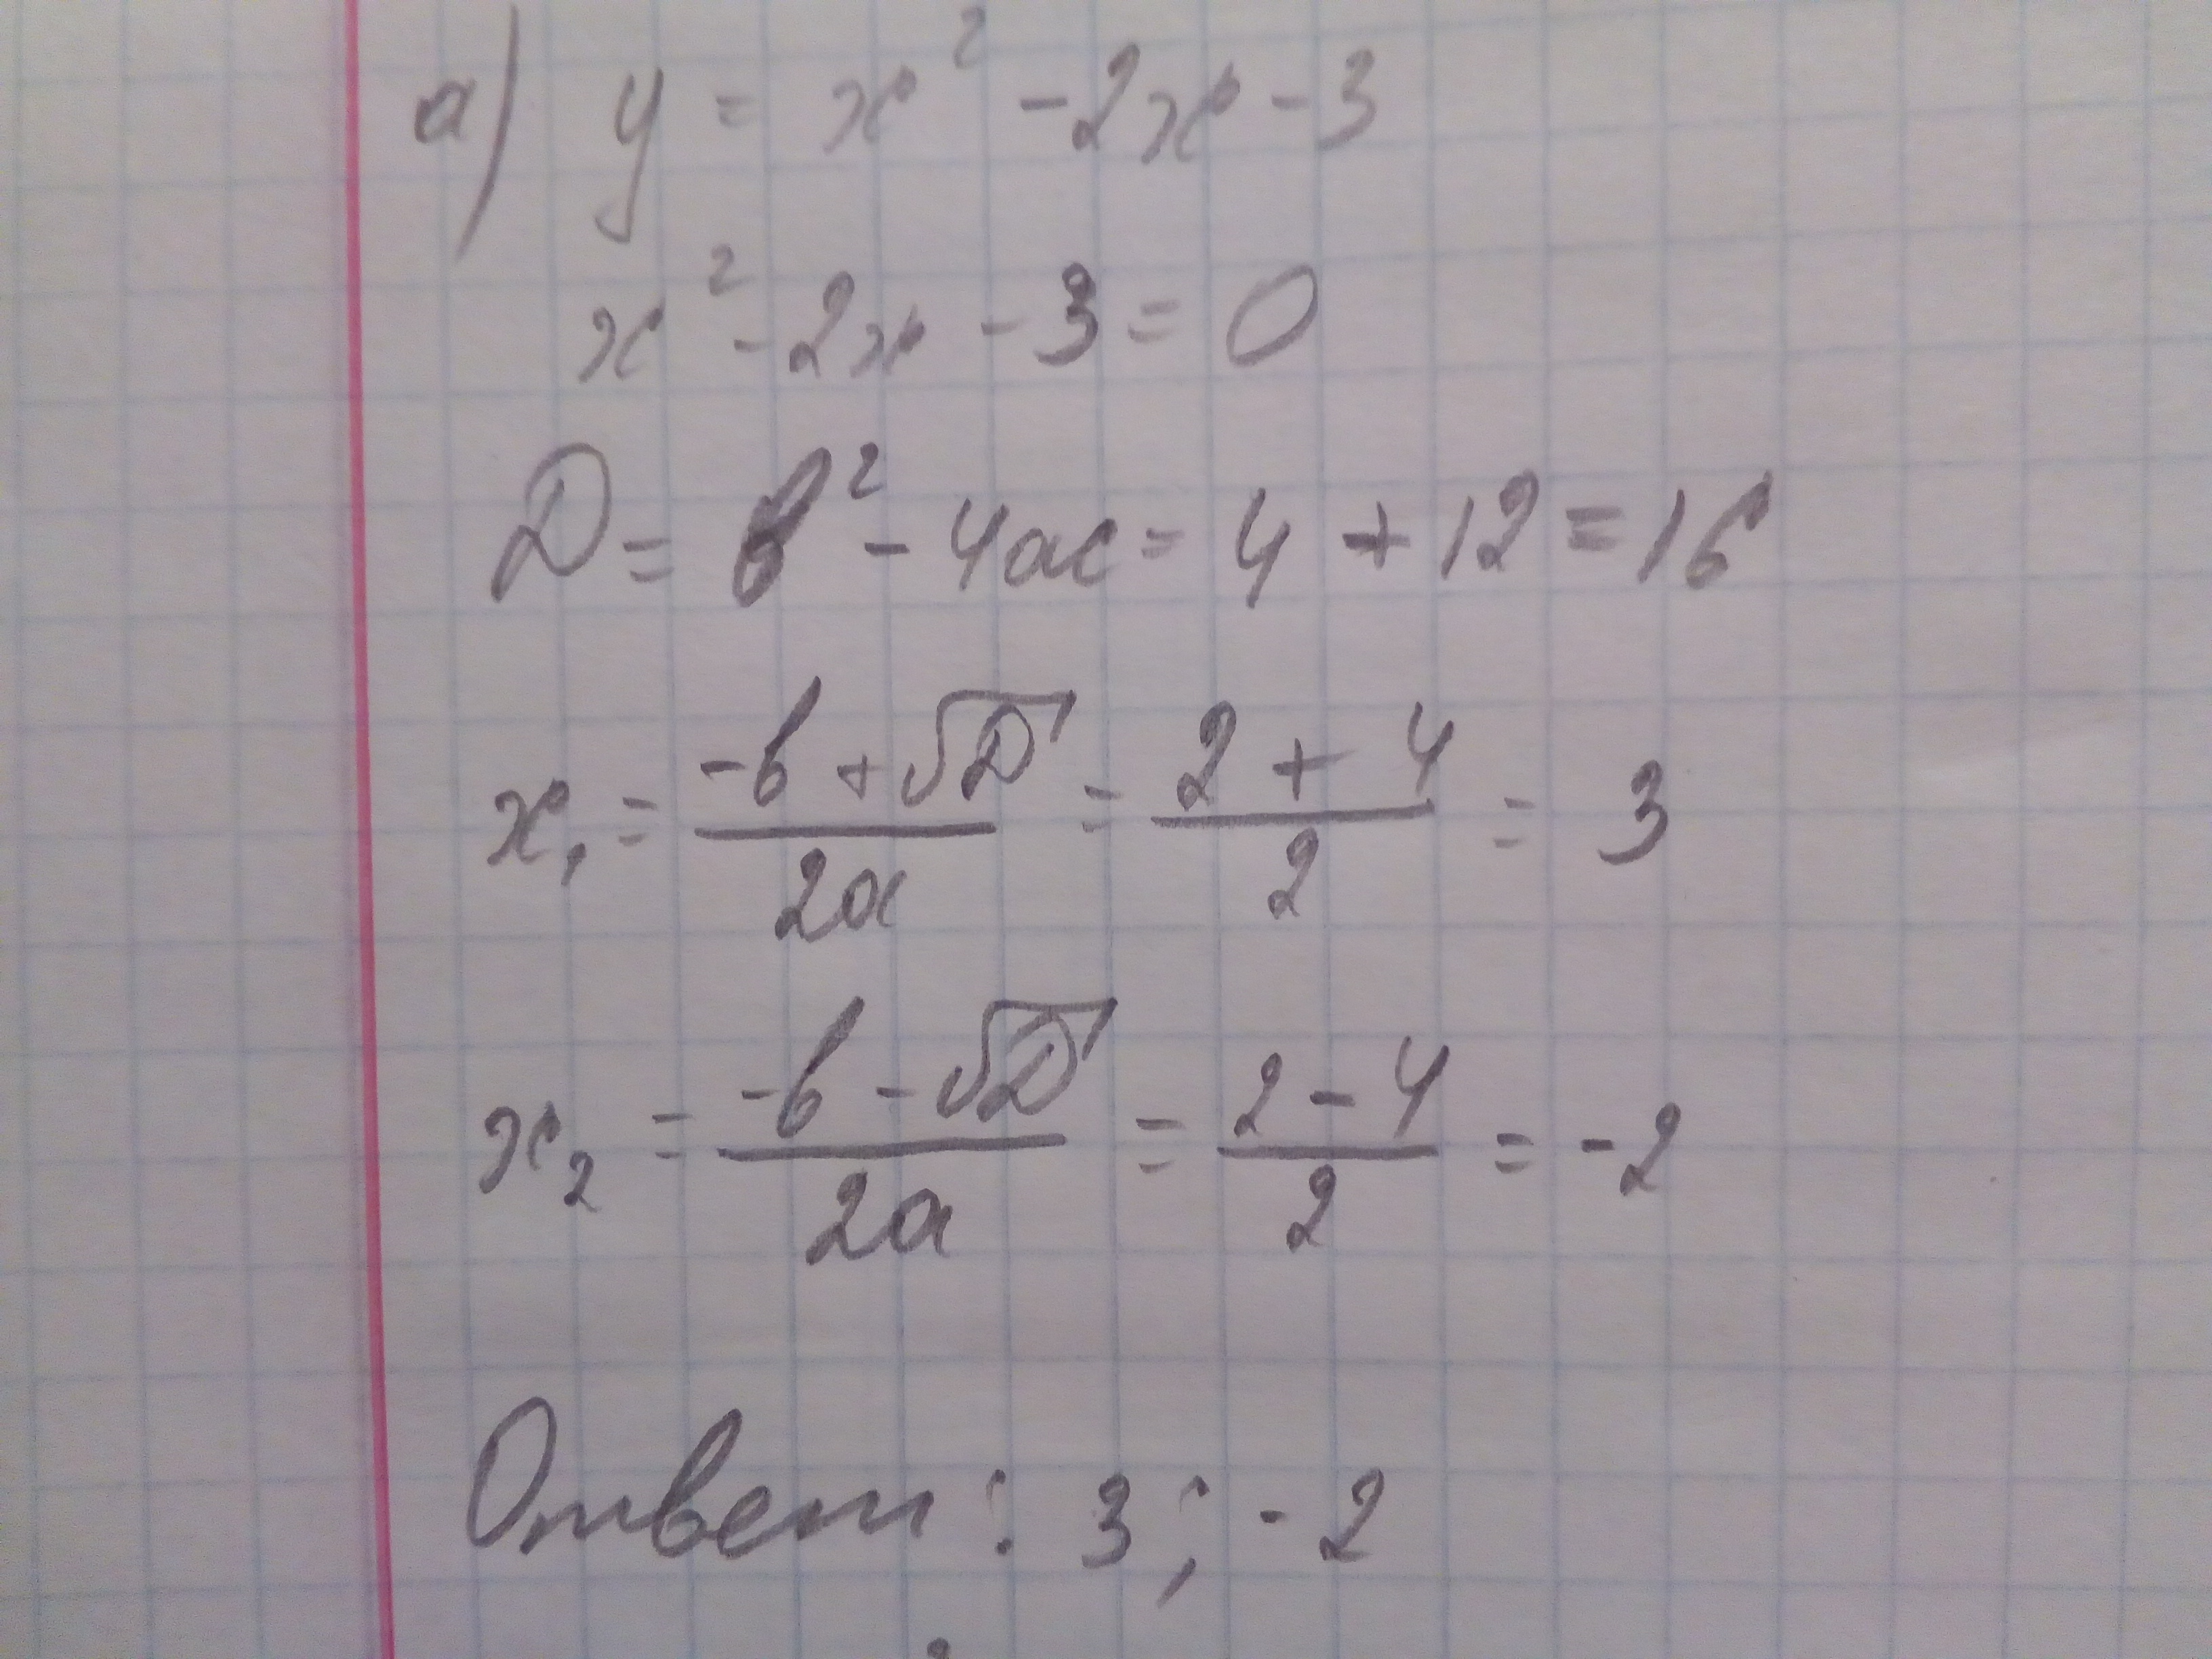 а) y = x² - 2x - 3
x² - 2x - 3 = 0
D = b² - 4ac = 4 + 12 = 16
x₁ = (-b + √D) / 2a = (2 + 4) / 2 = 3
x₂ = (-b - √D) / 2a = (2 - 4) / 2 = -2
Ответ: 3; -2